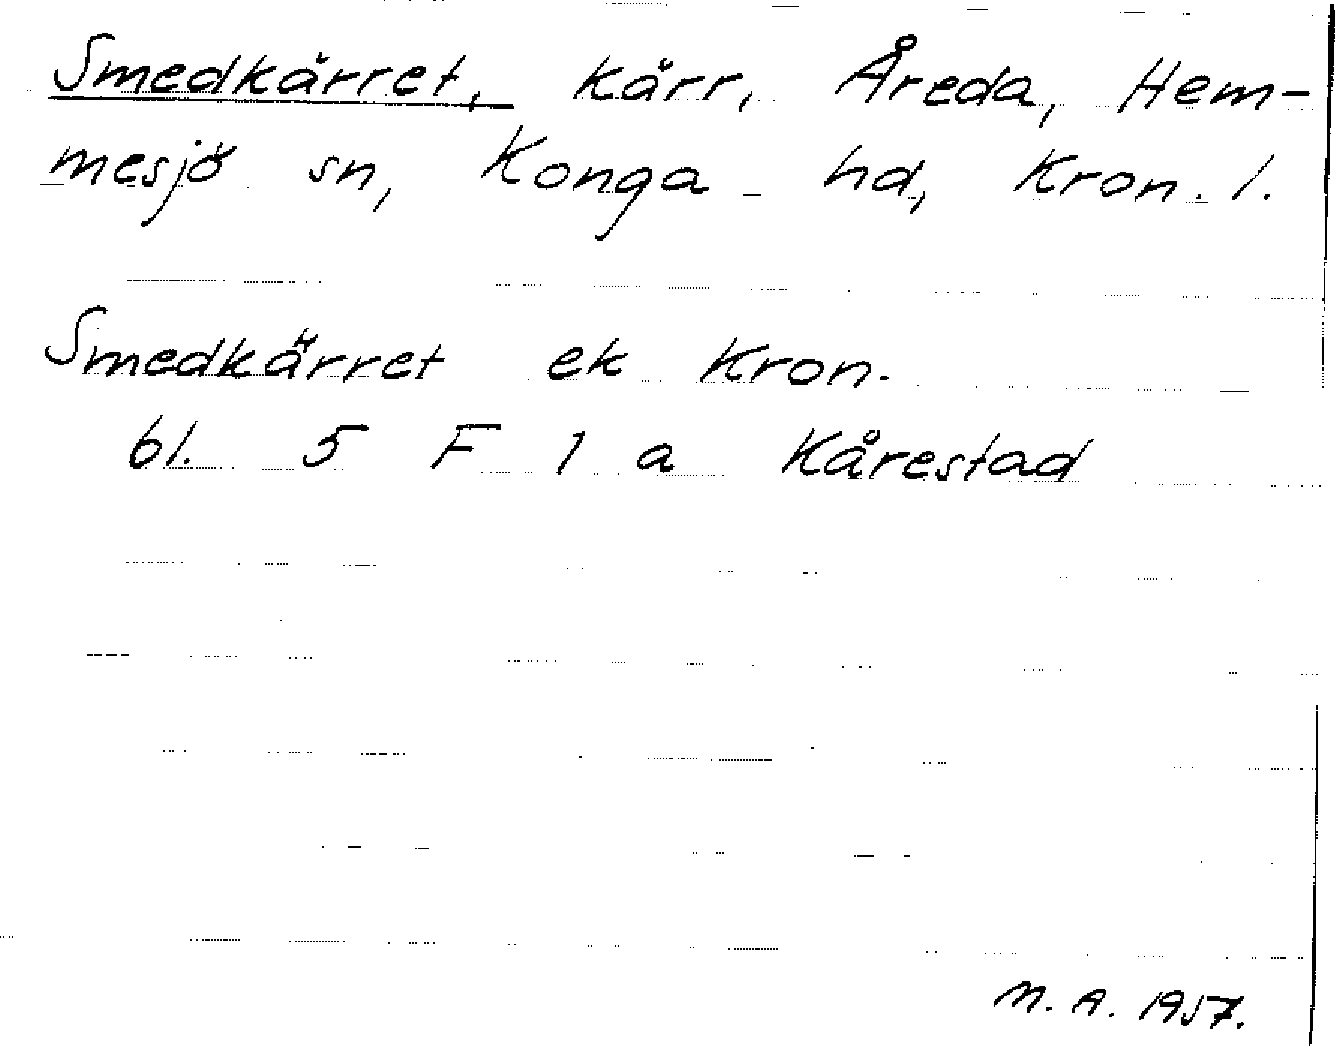 Smedkärret, kärr, Åreda, Hem-
mesjö sn, Konga hd, Kron. l.
Smedkärret ek Kron.
bl. 5 F 1 a Kårestad
M. A. 1957.